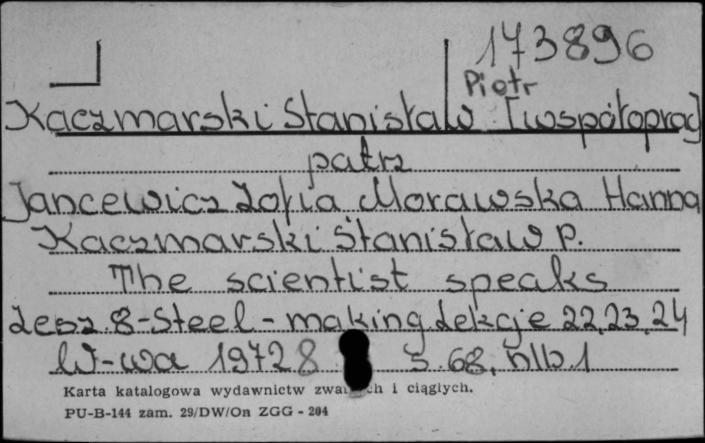 173896
Piotr
Kaczmarski Stanisław [współoprac]
patrz
Jancewicz Zofia Morawska Hanna
Kaczmarski Stanisław P.
The scientist speaks
Zesz. 8-Steel-making. Lekcje 22, 23, 24
W-wa 1972 8 s. 68, nlb 1
Karta katalogowa wydawnictw zwartych i ciągłych.
PU-B-144 zam. 29/DW/On ZGG - 204